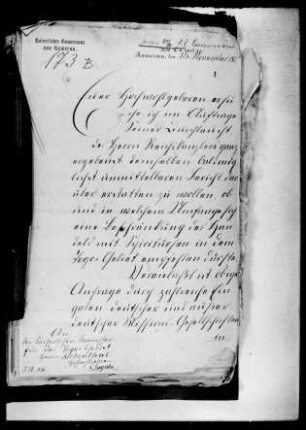 Kaiserlicher Gouverneur
von Kamerun.
173 B
Kamerun, den November 188
Euer Hochwohlgeboren ersu-
che ich im Auftrage
Seiner Durchlaucht
des Herrn Reichskanzlers ganz
ergebenst demselben baldmög-
lichst unmittelbaren Bericht dar-
über erstatten zu wollen, ob
und in welchem Umfange sich
eine Beschränkung des Han-
dels mit Spirituosen in dem
Togo-Gebiet empfehlen dürfte.
Veranlaßt ist obige
Anfrage durch zahlreiche Ein-
gaben deutscher und außer-
deutscher Missions-Gesellschaften
An
den Kaiserlichen Kommissar
für das Togo-Gebiet
Herrn